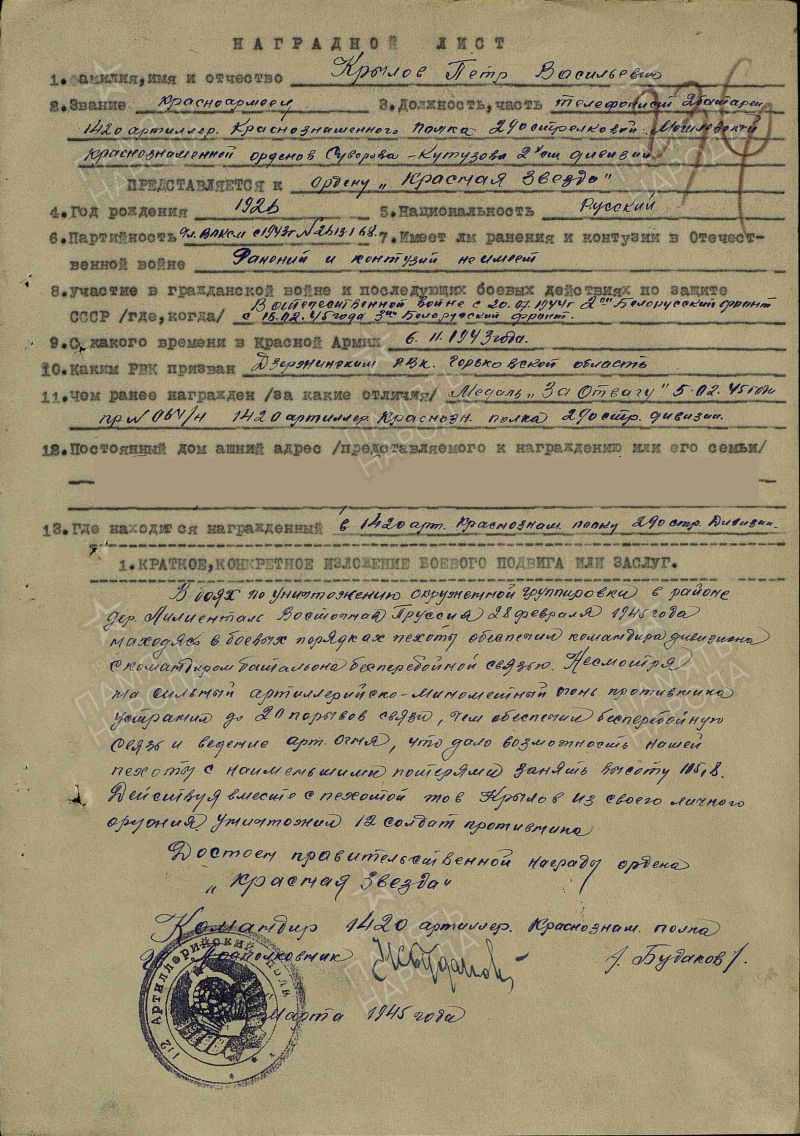 НАГРАДНОЙ ЛИСТ
1. Фамилия, имя и отчество Крылов Петр Васильевич
2. Звание красноармеец 3. Должность, часть телефонист 2 батареи
1420 артиллер. Краснознаменного полка 290 стрелковой Могилевской
краснознаменной орденов Суворова-Кутузова 2й ст дивизии
ПРЕДСТАВЛЯЕТСЯ к ордену „Красная Звезда"
4. Год рождения 1926 5. Национальность Русский
6. Партийность Чл. ВЛКСМ с 1943г 7. Имеет лм ранения и контузии в Отечест-
венной войне Ранений и контузий не имеет
8. участие в гражданской войне и последующих боевых действиях по защите
СССР /где, когда/ В отечественной войне с 20.07.1944г 2ой Белорусский фронт
с 15.02.45 года 3ий Белорусский фронт.
9. С какого времени в Красной Армии 6. 11. 1943 года.
10. Каким РВК призван Дзержинским РВК. Горьковской область
11. Чем ранее награжден /за какие отличия/ Медаль „За Отвагу" 5.02.45 года
пр N 064/н 1420 артиллер. Краснозн. полка 290 стр. дивизии.
12. Постоянный дом ашний адрес /представляемого к награждению или его семьи/
13. Где находится награжденный в 1420 арт. Краснознам. полку 290 стр. Дивизии.
1. КРАТКОЕ, КОНКРЕТНОЕ ИЗЛОЖЕНИЕ БОЕВОГО ПОДВИГА ИЛИ ЗАСЛУГ.
В боях по уничтожению окруженной группировки в районе
дер. Лилиенталь Восточная Пруссия 28 февраля 1945 года
находясь в боевых порядках пехоты обеспечил командира дивизиона
с командиром батальона бесперебойной связью. Несмотря
на сильный артиллерийско-минометный огонь противника
устранил до 20 порывов связи, чем обеспечил бесперебойную
связь и ведение арт. огня, что дало возможность нашей
пехоты с наименьшими потерями занять высоту 105,8.
Действуя вместе с пехотой тов Крылов из своего личного
оружия уничтожил 12 солдат противника
Достоен правительственной награды ордена
„Красная Звезда"
Командир 1420 артиллер. Краснознам. полка
Подполковник /Будаков/.
Марта 1945 года
112 Артиллерийский полк
ПАМЯТЬ НАРОДА